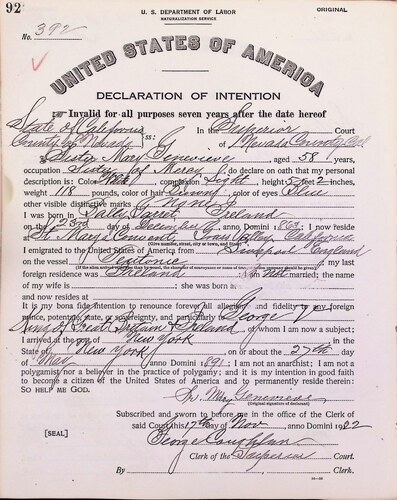 92
U. S. DEPARTMENT OF LABOR
NATURALIZATION SERVICE
ORIGINAL
No. 392
UNITED STATES OF AMERICA
DECLARATION OF INTENTION
Invalid for all purposes seven years after the date hereof
State of California
County of Nevada ss: In the Superior Court
of Nevada County, Cal
I, Sister Mary Genevieve, aged 58 years,
occupation Sister of Mercy, do declare on oath that my personal
description is: Color White, complexion Light, height 5 feet 2 inches,
weight 118 pounds, color of hair Brown, color of eyes Blue
other visible distinctive marks None
I was born in Ireland
on the 23rd day of December, anno Domini 1863; I now reside
at St. Mary's Convent Grass Valley, California
(Give number, street, city or town, and State)
I emigrated to the United States of America from Liverpool England
on the vessel Teutonic; my last
foreign residence was Ireland; I am not married; the name
of my wife is ; she was born at
and now resides at
It is my bona fide intention to renounce forever all allegiance and fidelity to any foreign
prince, potentate, state, or sovereignty, and particularly to George V
King of Great Britain Ireland, of whom I am now a subject;
I arrived at the port of New York, in the
State of New York, on or about the 27th day
of May, anno Domini 1891; I am not an anarchist; I am not a
polygamist nor a believer in the practice of polygamy; and it is my intention in good faith
to become a citizen of the United States of America and to permanently reside therein:
SO HELP ME GOD.
Sr. Mary Genevieve
(Original signature of declarant)
Subscribed and sworn to before me in the office of the Clerk of
said Court this 17th day of Nov, anno Domini 1922
[SEAL]
George Coughlan
Clerk of the Superior Court.
By , Clerk.